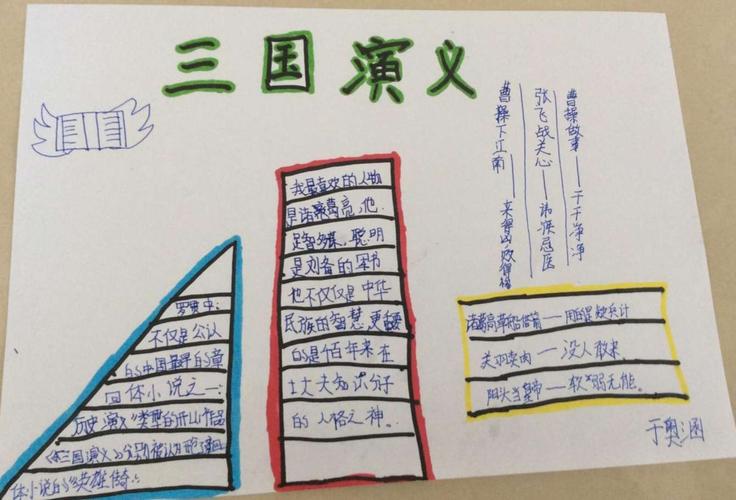 三国演义
曹操做事——干干净净
张飞战关公——讳疾忌医
曹操下江南——来得凶，败得惨
罗贯中：
不仅是公认
的中国最早的章
回体小说之一
历史演义类型的开山作品
《三国演义》分别被认为
体小说的英雄传
我最喜欢的人物
是诸葛亮，他
足智多谋，聪明
是刘备的军师
他不仅仅是中华
民族的智慧更重要
的是个百年来在
士大夫知识分子
的人格之神。
诸葛亮草船借箭——用的是疑兵计
关羽卖肉——没人敢来。
阿斗当皇帝——软弱无能。
于奥涵